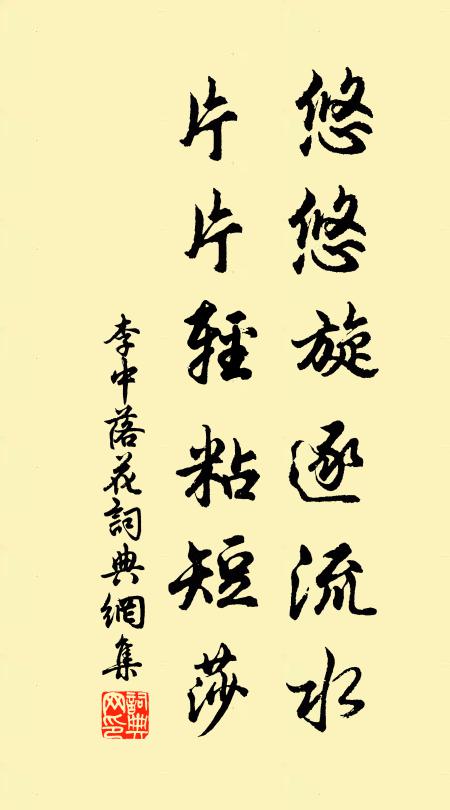 悠悠旋逐流水
片片輕粘短莎
李中落花詞典網集
詞典网印